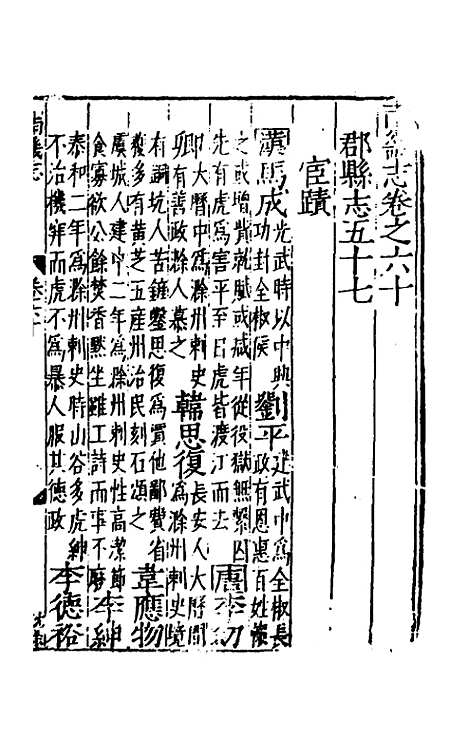 南畿志卷之六十
郡縣志五十七
宦蹟
漢馬成光武時以中興功封全椒侯劉平建武中為全椒長政有恩惠百姓懷
之或增貲就賦或减年從役獄無繫囚先有虎為害平至邑虎皆渡江而去唐李幼
卿大曆中為滁州刺史有善政滁人慕之韓思復長安人大曆間為滁州刺史境
有銅坑人苦鏟鑿思復為賈他鄙費省穫多有黃芝五産州治民刻石頌之韋應物
虞城人建中二年為滁州刺史性高潔節食寡欲公餘焚香默坐雖工詩而事不廢李紳
泰和二年為滁州刺史時山谷多虎紳不治機穽而虎不為暴人服其德政李德裕
南畿志 卷六十